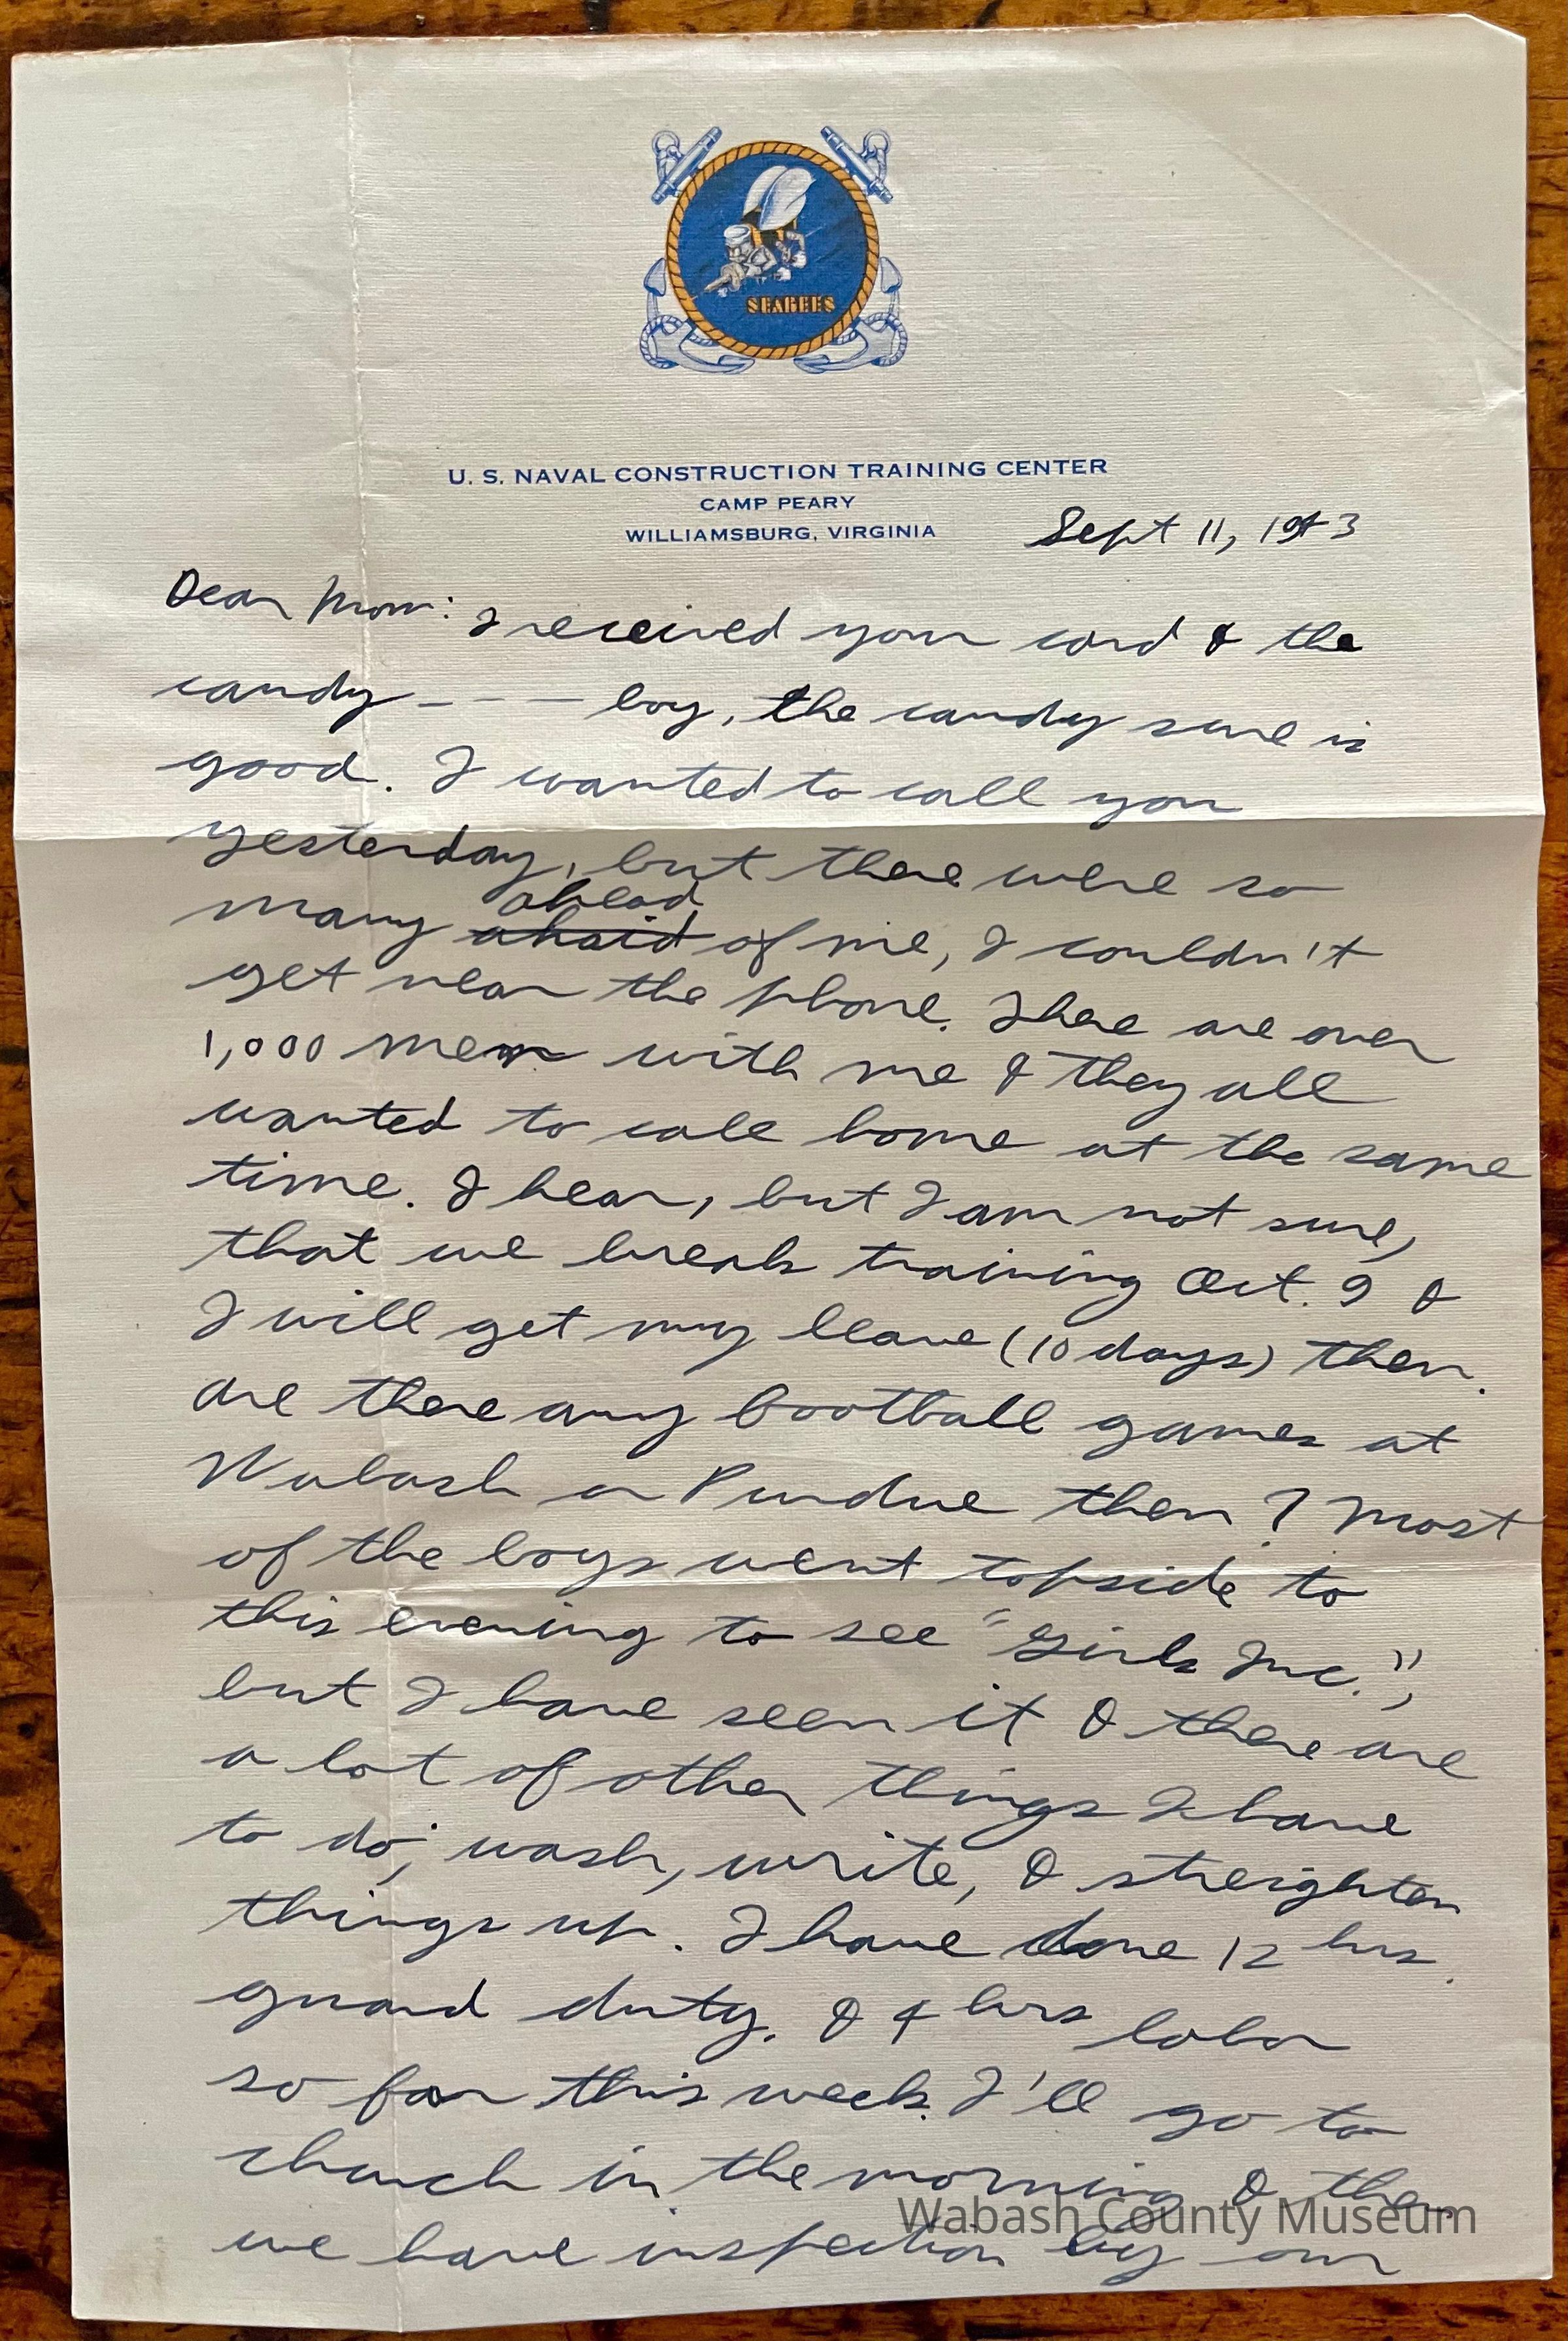 SEABEES
U. S. NAVAL CONSTRUCTION TRAINING CENTER
CAMP PEARY
WILLIAMSBURG, VIRGINIA
Sept 11, 1943
Dear Mom: I received your card & the
candy - - - boy, the candy sure is
good. I wanted to call you
yesterday, but there were so
many ahaid ahead of me, I couldn't
get near the phone. There are over
1,000 men with me & they all
wanted to call home at the same
time. I hear, but I am not sure,
that we break training Oct. 9 &
I will get my leave (10 days) then.
Are there any football games at
Wabash or Purdue then? Most
of the boys went topside to
this evening to see "Girls Inc.",
but I have seen it & there are
a lot of other things I have
to do; wash, write, & streighten
things up. I have done 12 hrs.
guard duty. & 4 hrs labor
so far this week. I'll go to
church in the morning & then
we have inspection by our
Wabash County Museum